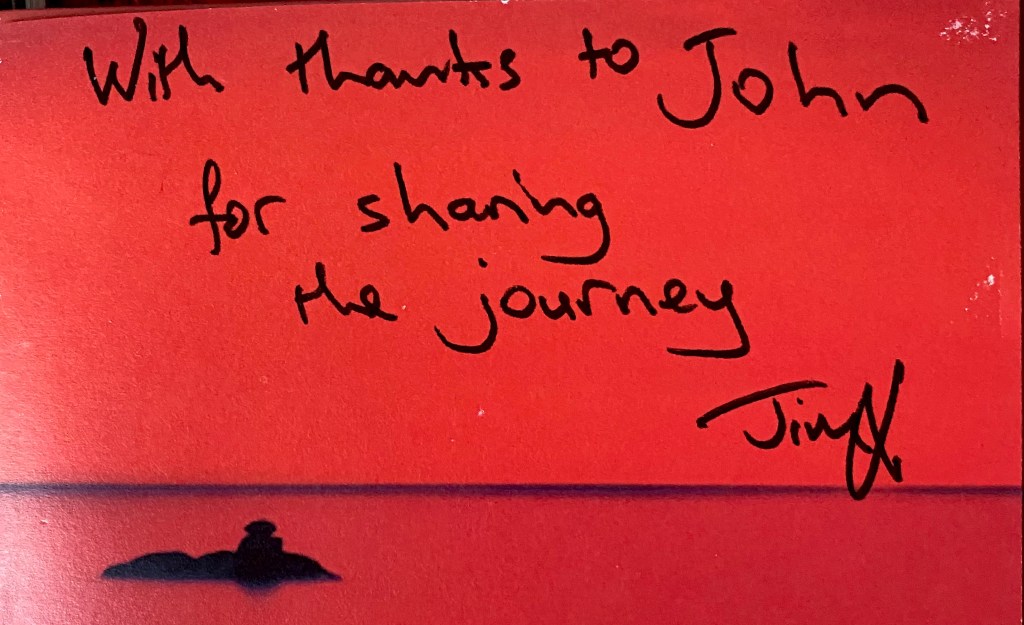 With thanks to John
for sharing
the journey
Jim